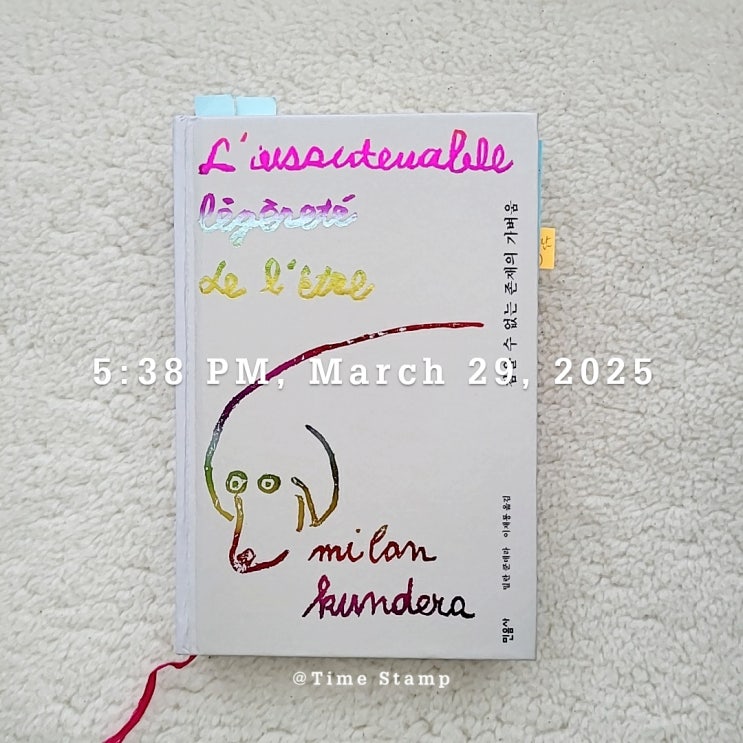 L'insoutenable
légèreté
de l'être
참을 수 없는 존재의 가벼움
5:38 PM, March 29, 2025
milan
kundera
밀란 쿤데라 이재룡 옮김
민음사
@Time Stamp